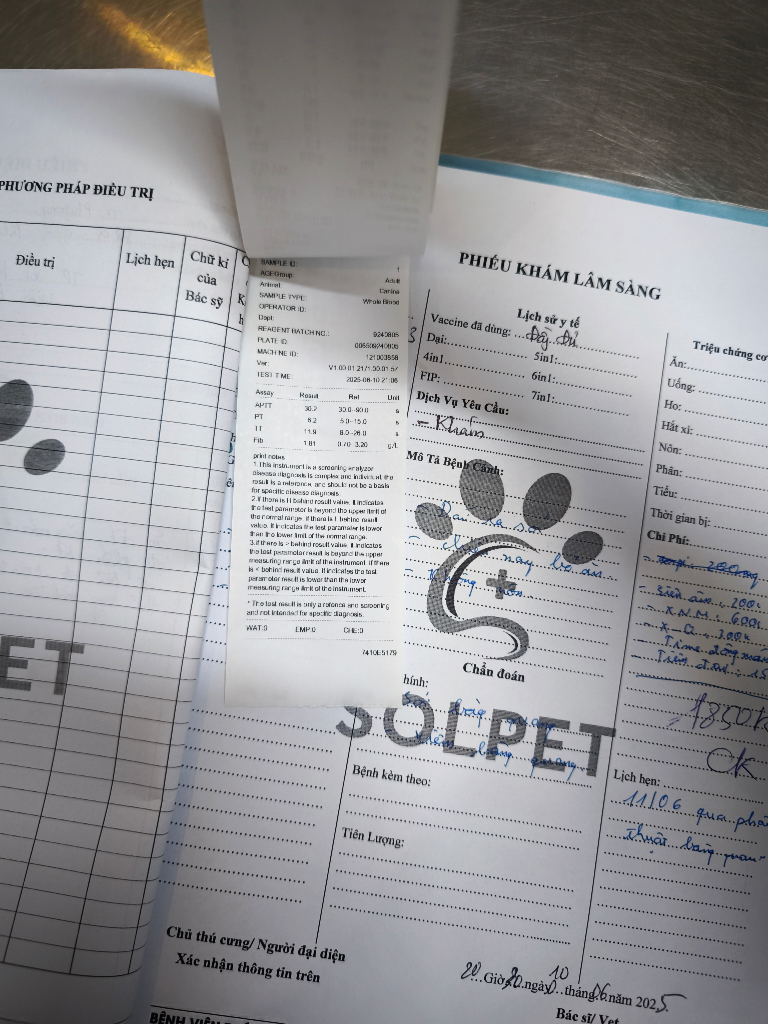 PHƯƠNG PHÁP ĐIỀU TRỊ
Điều trị
Lịch hẹn
Chữ kí
của
Bác sỹ
SAMPLE ID: 1
AGEGroup: Adult
Animal: Canine
SAMPLE TYPE: Whole Blood
OPERATOR ID:
Dept:
REAGENT BATCH NO.: 9240805
PLATE ID: 006509240805
MACHINE ID: 121003558
Ver: V1.00.01.21/1.00.01.57
TEST TIME: 2025-06-10 21:06
Assay Result Ref Unit
APTT 36.2 30.0-90.0 s
PT 6.2 5.0-15.0 s
TT 11.9 8.0-26.0 s
Fib 1.81 0.70-3.20 g/L
print notes
1.This instrument is a screening analyzor
disease diagnosis is complex and individual, the
result is a reference, and should not be a basis
for specific disease diagnosis.
2.If there is H behind result value. It indicates
the test parameter is beyond the upper limit of
the normal range. If there is L behind result
value. It indicates the test parameter is lower
than the lower limit of the normal range.
3.If there is > behind result value. It indicates
the test parameter result is beyond the upper
measuring range limit of the instrument. If there
is < behind result value. It indicates the test
parameter result is lower than the lower
measuring range limit of the instrument.
* The test result is only a refrence and screening
and not intended for specific diagnosis.
WAT:0 EMP:0 CHE:0
7410E5179
PHIẾU KHÁM LÂM SÀNG
Lịch sử y tế
Vaccine đã dùng: Đầy Đủ
Dại: 5in1:
4in1: 6in1:
FIP: 7in1:
Dịch Vụ Yêu Cầu:
- Khám
Mô Tả Bệnh Cảnh:
Chẩn đoán
hính:
bàng quang
Viêm bàng quang
SOLPET
Bệnh kèm theo:
Tiên Lượng:
Triệu chứng cơ
Ăn:
Uống:
Ho:
Hắt xì:
Nôn:
Phân:
Tiểu:
Thời gian bị:
Chi Phí:
Siêu âm: 200k
- X.N.M: 600k
- X-Q: 300k
1850k
OK
Lịch hẹn:
11/06 qua phẫu
thuật bàng quang
Chủ thú cưng/ Người đại diện
Xác nhận thông tin trên
20 Giờ 20 ngày 10 tháng 06 năm 2025
Bác sĩ/ Vet
BỆNH VIỆN
ET